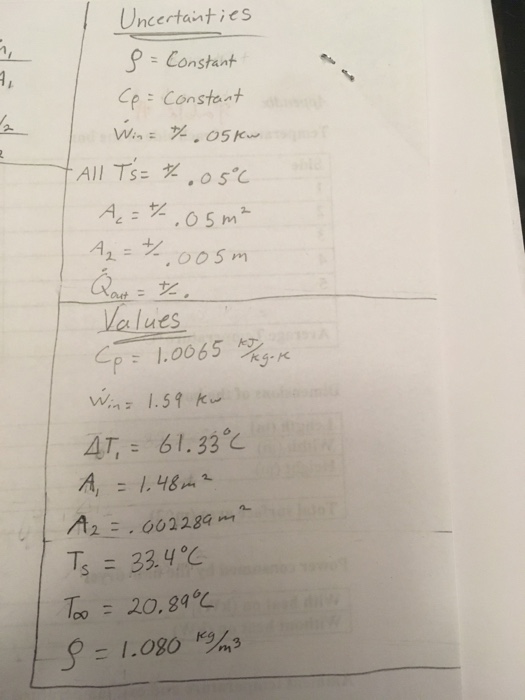 Uncertainties
ρ = Constant
Cp = Constant
Ẇin = +/- .05 Kw
All T's = +/- .05°C
Ac = +/- .05 m²
A2 = +/- .005 m
Q̇out = +/- .
Values
Cp = 1.0065 KJ/kg·K
Ẇin = 1.59 Kw
ΔT1 = 61.33°C
A1 = 1.48 m²
A2 = .002289 m²
Ts = 33.4°C
T∞ = 20.89°C
ρ = 1.080 kg/m3